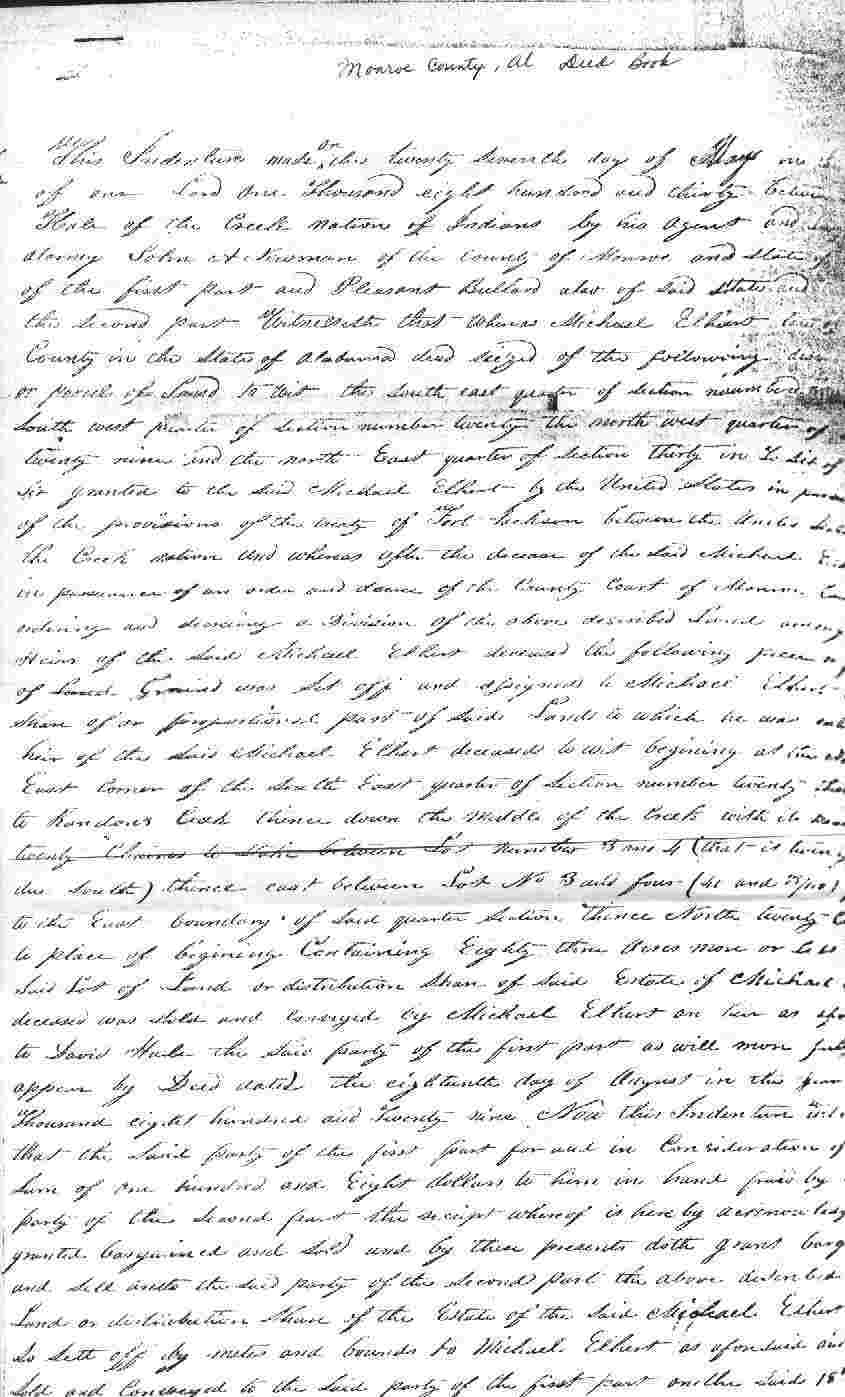 Monroe County, Al Deed Book
This Indenture made on this twenty seventh day of May in
off our Lord One Thousand eight hundred and thirty betwe
Hale of the Creek nation of Indians by his Agent and
atorney John A Newman of the County of Monroe and State of
of the first part and Pleasant Bullard also of Said State and
the Second part Witnesseth that whereas Michael Elhert late of
County in the State of Alabama died seized of the following
or parcels of Land to Wit the South east quarter of Section noumber
South west quarter of Section number twenty the north west quarter of
twenty nine and the north East quarter of Section thirty in T. Six of
Six granted to the Said Michael Elhert by the United States in
of the provisions of the treaty of Fort Jackson between the
the Creek nation and whereas after the decease of the Said Michael
in pursuance of an order and decree of the County Court of Monroe
ordering and decreeing a Division of the above described Land among
Heirs of the Said Michael Elhert deceased the following piece
of Land Ground was Set off and assigned to Michael Elhert
share of or propositional part of Said Lands to which he was
heir of the Said Michael Elhert deceased to wit begining at the
East Corner of the South East quarter of Section number twenty
to Randons Creek thence down the middle of the Creek with its
twenty Chains to Stake between Lot number 3 and 4 (that is
due South) thence east between Lot No 3 and four (41 and
to the East boundary of Said quarter Section thence North twenty
to place of begining Containing Eighty three Acres more or less
Said Lot of Land or distribution Share of Said Estate of Michael
deceased was Sold and Conveyed by Michael Elhert an heir as
to David Hale the Said party of the first part as will more
appear by Deed dated the eighteenth day of August in the year
Thousand eight hundred and Twenty nine Now this Indenture
that the Said party of the first part for and in Consideration of
Sum of one hundred and Eight dollars to him in hand paid by
party of the Second part the receipt whereof is here by
granted bargained and Sold and by these presents doth grant barg
and Sell unto the Said party of the Second part the above described
Land or distribution Share of the Estate of the Said Michael Elhert
So Sett off by metes and bounds to Michael Elhert as aforesaid and
Sold and Conveyed to the Said party of the first part on the Said 18th